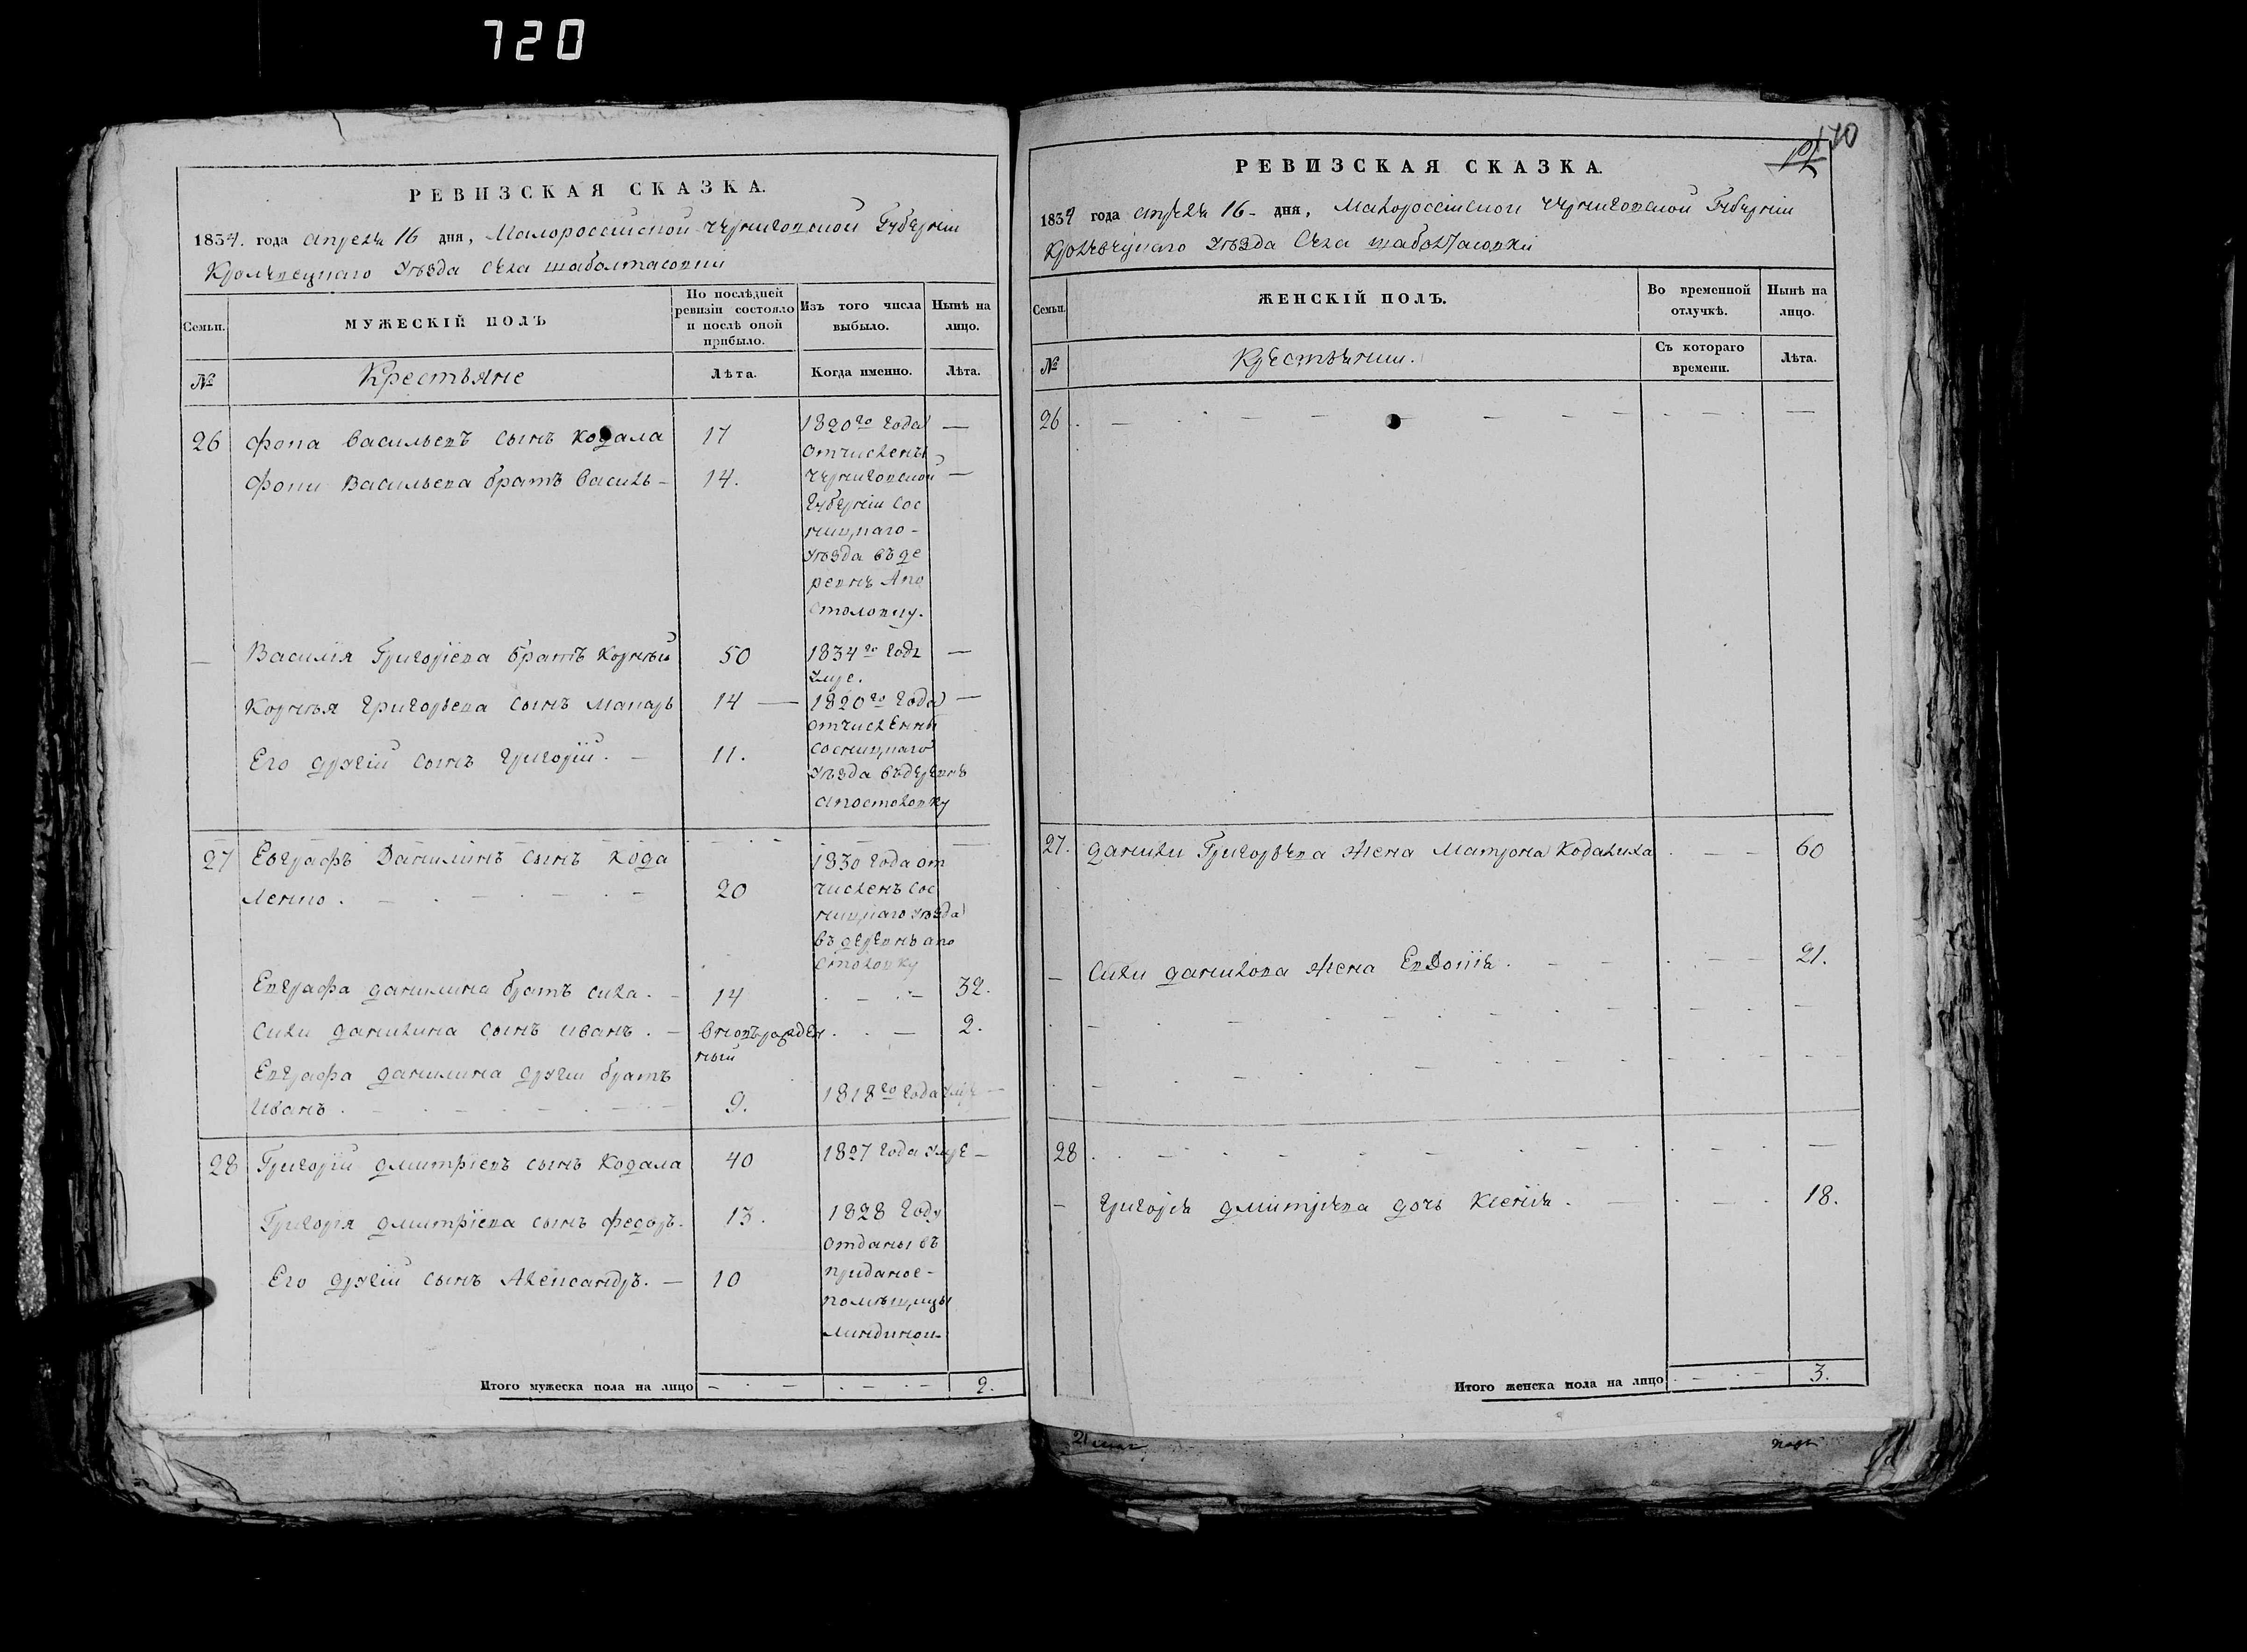 720
РЕВИЗСКАЯ СКАЗКА.
1834. года апреля 16 дня, Малороссійской Черниговской Губерніи
Кролевецкаго уезда села шаболтасовки
Семьи.
МУЖЕСКІЙ ПОЛЪ
По послѣдней ревизіи состояло и послѣ оной прибыло.
Изъ того числа выбыло.
Нынѣ на лицо.
№
Крестьяне
Лѣта.
Когда именно.
Лѣта.
26 фома васильевъ сынъ кодала 17 1820го года —
отчислены
фомы васильева братъ василь — 14. черниговской —
Губерніи сос
ницкаго -
уезда въ де
ревнѣ Апо
столовку.
— Василія Григоріева братъ Корнѣй 50 1834го года —
умре.
Корнѣя григорьева сынъ макаръ 14 — 1820го года —
отчислены
сосницкаго
Его другій сынъ григорій. — 11.
уезда въ деревнѣ
апостоловку
27 Евграфъ Данилинъ сынъ кода
ленко. 20
1830 года от
численъ сос
ницкаго уезда
въ деревнѣ апо
столовку
Евграфа данилина братъ сила. — 14 32.
силы данилина сынъ иванъ. — вновьрожден
ный 2.
Евграфа данилина другій братъ
иванъ. 9. 1818го года умре —
28 Григорій дмитріевъ сынъ кодала 40 1827 года умре —
Григорія дмитріева сынъ федоръ. 13. 1828 году
отданы въ
Его другій сынъ Александръ. — 10 приданое -
помѣщицы
линдиной
Итого мужеска пола на лицо 2.
170
12
РЕВИЗСКАЯ СКАЗКА.
1834 года апреля 16 - дня, Малороссійской черниговской Губерніи
Кролевецкаго уезда села шаболтасовки
Семьи.
ЖЕНСКІЙ ПОЛЪ.
Во временной отлучкѣ.
Нынѣ на лицо.
№
Крестьянки.
Съ котораго времени.
Лѣта.
26
27. данилы Григорьева жена Матрона Кодалиха 60
— силы данилова жена Евдокія. 21.
28
— григорія дмитріева дочь Ксенія. 18.
Итого женска пола на лицо 3.